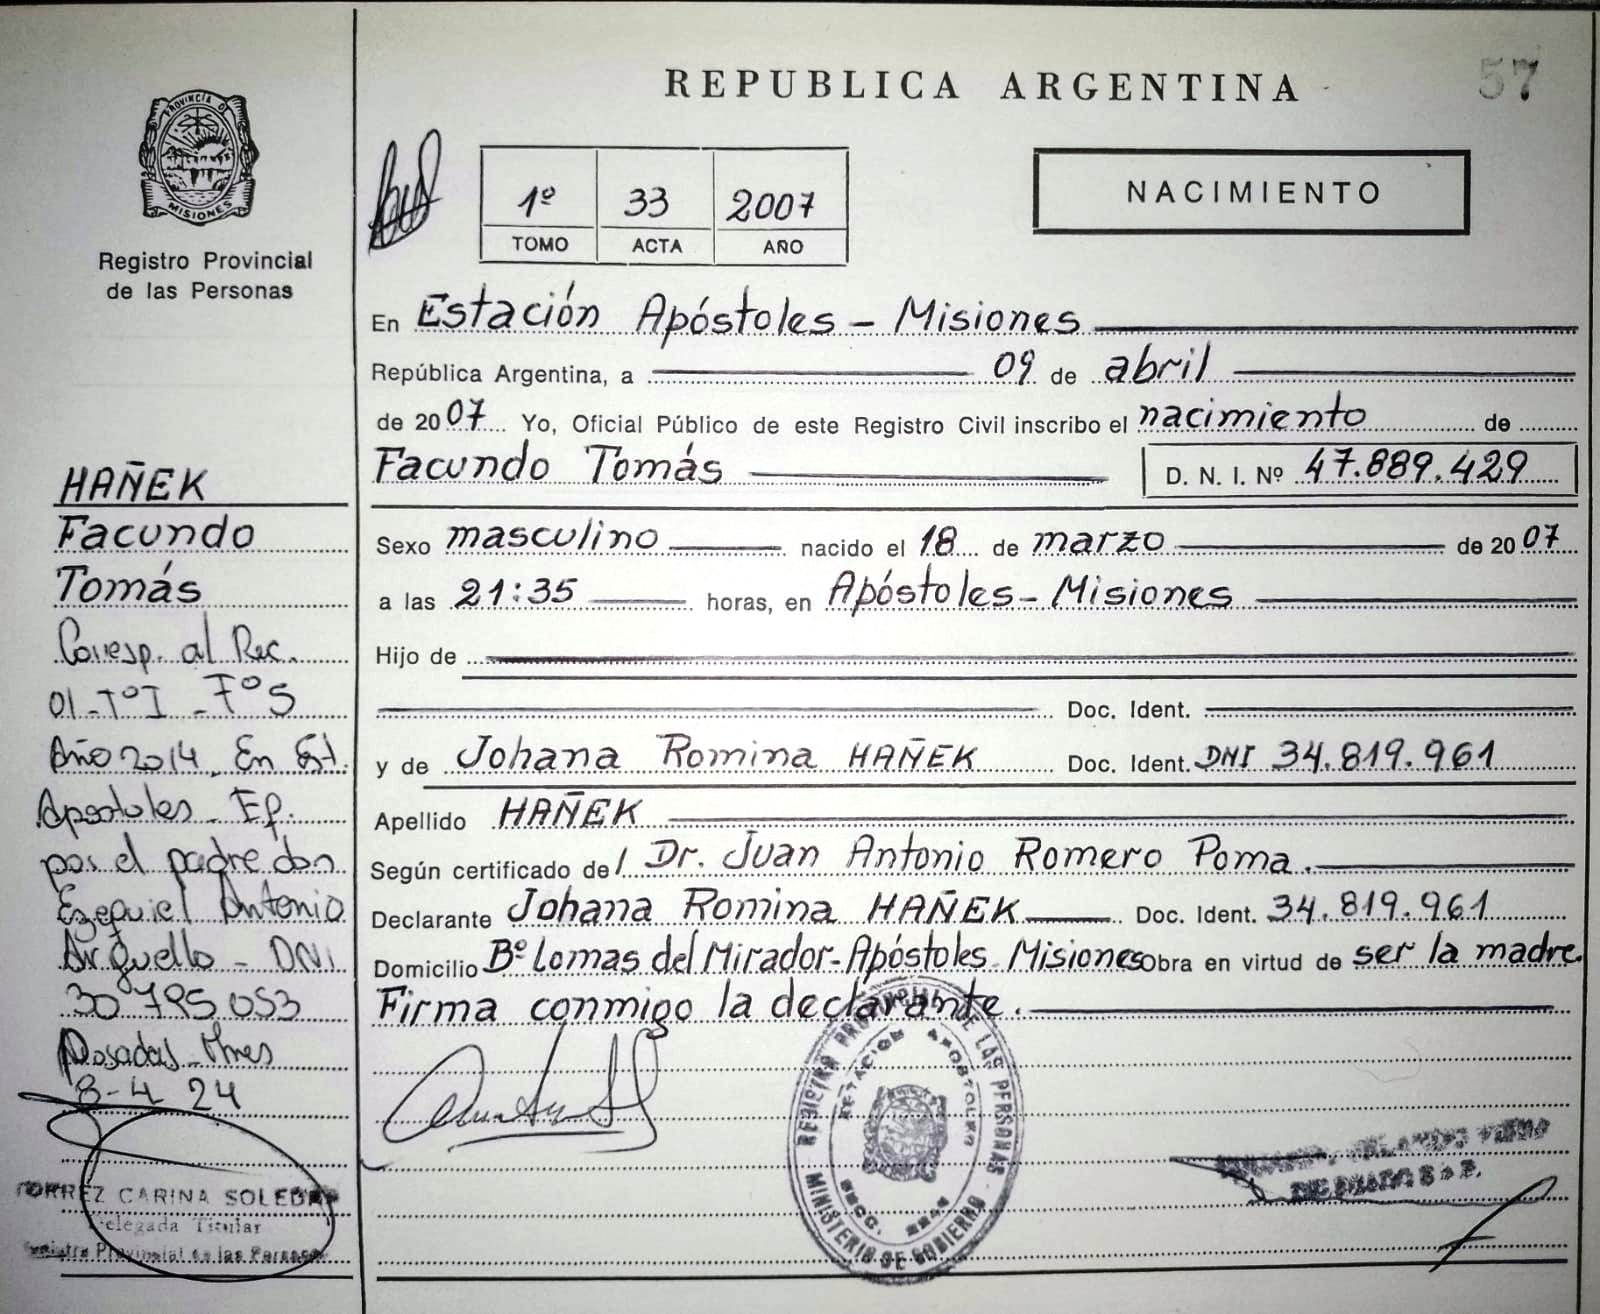 57
REPUBLICA ARGENTINA
PROVINCIA D
MISIONES
Registro Provincial
de las Personas
1º 33 2007
TOMO ACTA AÑO
NACIMIENTO
En Estación Apóstoles - Misiones
República Argentina, a 09 de abril
de 2007 Yo, Oficial Público de este Registro Civil inscribo el nacimiento de
Facundo Tomás D. N. I. Nº 47.889.429
Sexo masculino nacido el 18 de marzo de 2007
a las 21:35 horas, en Apóstoles - Misiones
Hijo de
Doc. Ident.
y de Johana Romina HAÑEK Doc. Ident. DNI 34.819.961
Apellido HAÑEK
Según certificado de/ Dr. Juan Antonio Romero Poma.
Declarante Johana Romina HAÑEK Doc. Ident. 34.819.961
Domicilio Bº Lomas del Mirador-Apóstoles-Misiones Obra en virtud de ser la madre.
Firma conmigo la declarante.
HAÑEK
Facundo
Tomás
Corresp. al Rec.
01-TºI-FºS
Año 2014. En Est.
Apostoles. Ef.
por el padre don
Ezequiel Antonio
Arguello - DNI
30.795.053
Posadas-Mnes
8-4 24
TORREZ CARINA SOLEDAD
Delegada Titular
Registro Provincial de las Personas
REGISTRO PROVINCIAL DE LAS PERSONAS
ESTACION APOSTOLES
SECC.
MINISTERIO DE GOBIERNO